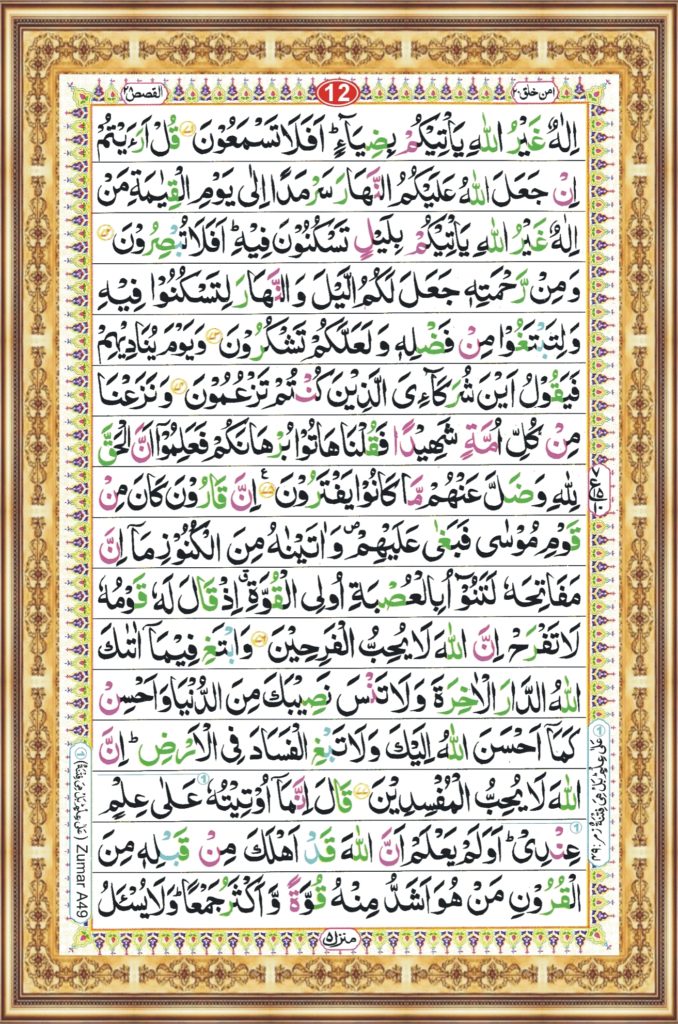 القصص ٢٨
12
امن خلق ٢٠
اِلٰهٌ غَيْرُ اللّٰهِ يَاْتِيْكُمْ بِضِيَآءٍ ؕ اَفَلَا تَسْمَعُوْنَ ۝ قُلْ اَرَءَيْتُمْ
اِنْ جَعَلَ اللّٰهُ عَلَيْكُمُ النَّهَارَ سَرْمَدًا اِلٰى يَوْمِ الْقِيٰمَةِ مَنْ
اِلٰهٌ غَيْرُ اللّٰهِ يَاْتِيْكُمْ بِلَيْلٍ تَسْكُنُوْنَ فِيْهِ ؕ اَفَلَا تُبْصِرُوْنَ ۝
وَمِنْ رَّحْمَتِهٖ جَعَلَ لَكُمُ الَّيْلَ وَالنَّهَارَ لِتَسْكُنُوْا فِيْهِ
وَلِتَبْتَغُوْا مِنْ فَضْلِهٖ وَلَعَلَّكُمْ تَشْكُرُوْنَ ۝ وَيَوْمَ يُنَادِيْهِمْ
فَيَقُوْلُ اَيْنَ شُرَكَآءِىَ الَّذِيْنَ كُنْتُمْ تَزْعُمُوْنَ ۝ وَنَزَعْنَا
مِنْ كُلِّ اُمَّةٍ شَهِيْدًا فَقُلْنَا هَاتُوْا بُرْهَانَكُمْ فَعَلِمُوْۤا اَنَّ الْحَقَّ
لِلّٰهِ وَضَلَّ عَنْهُمْ مَّا كَانُوْا يَفْتَرُوْنَ ۝ اِنَّ قَارُوْنَ كَانَ مِنْ
قَوْمِ مُوْسٰى فَبَغٰى عَلَيْهِمْ ۪ وَاٰتَيْنٰهُ مِنَ الْكُنُوْزِ مَاۤ اِنَّ
مَفَاتِحَهٗ لَتَنُوْٓاُ بِالْعُصْبَةِ اُولِى الْقُوَّةِ ۗ اِذْ قَالَ لَهٗ قَوْمُهٗ
لَا تَفْرَحْ اِنَّ اللّٰهَ لَا يُحِبُّ الْفَرِحِيْنَ ۝ وَابْتَغِ فِيْمَاۤ اٰتٰىكَ
اللّٰهُ الدَّارَ الْاٰخِرَةَ وَلَا تَنْسَ نَصِيْبَكَ مِنَ الدُّنْيَا وَاَحْسِنْ
كَمَاۤ اَحْسَنَ اللّٰهُ اِلَيْكَ وَلَا تَبْغِ الْفَسَادَ فِى الْاَرْضِ ؕ اِنَّ
اللّٰهَ لَا يُحِبُّ الْمُفْسِدِيْنَ ۝ قَالَ اِنَّمَاۤ اُوْتِيْتُهٗ عَلٰى عِلْمٍ
عِنْدِىْ ؕ اَوَلَمْ يَعْلَمْ اَنَّ اللّٰهَ قَدْ اَهْلَكَ مِنْ قَبْلِهٖ مِنَ
الْقُرُوْنِ مَنْ هُوَ اَشَدُّ مِنْهُ قُوَّةً وَّاَكْثَرُ جَمْعًا ؕ وَلَا يُسْئَلُ
منزل ٥
Zumar A49